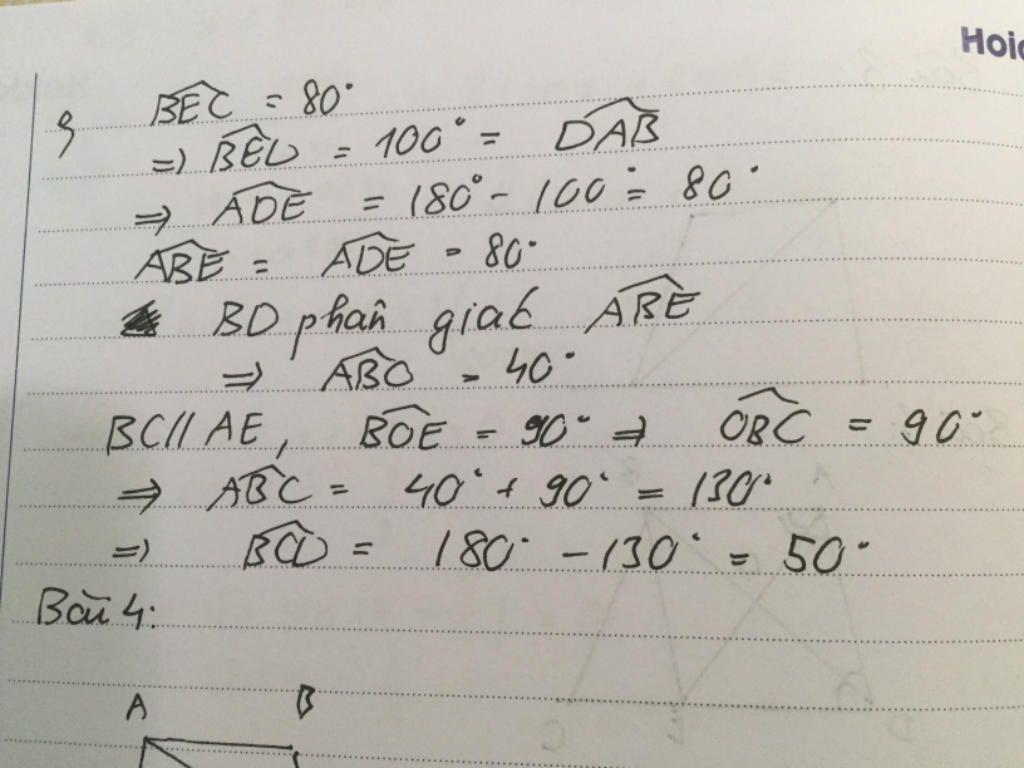 Hoic
c) \widehat{BEC} = 80°
=> \widehat{BED} = 100° = \widehat{DAB}
=> \widehat{ADE} = 180° - 100° = 80°
\widehat{ABE} = \widehat{ADE} = 80°
BD phân giác \widehat{ABE}
=> \widehat{ABO} = 40°
BC // AE, \widehat{BOE} = 90° => \widehat{OBC} = 90°
=> \widehat{ABC} = 40° + 90° = 130°
=> \widehat{BCD} = 180° - 130° = 50°
Bài 4:
A B